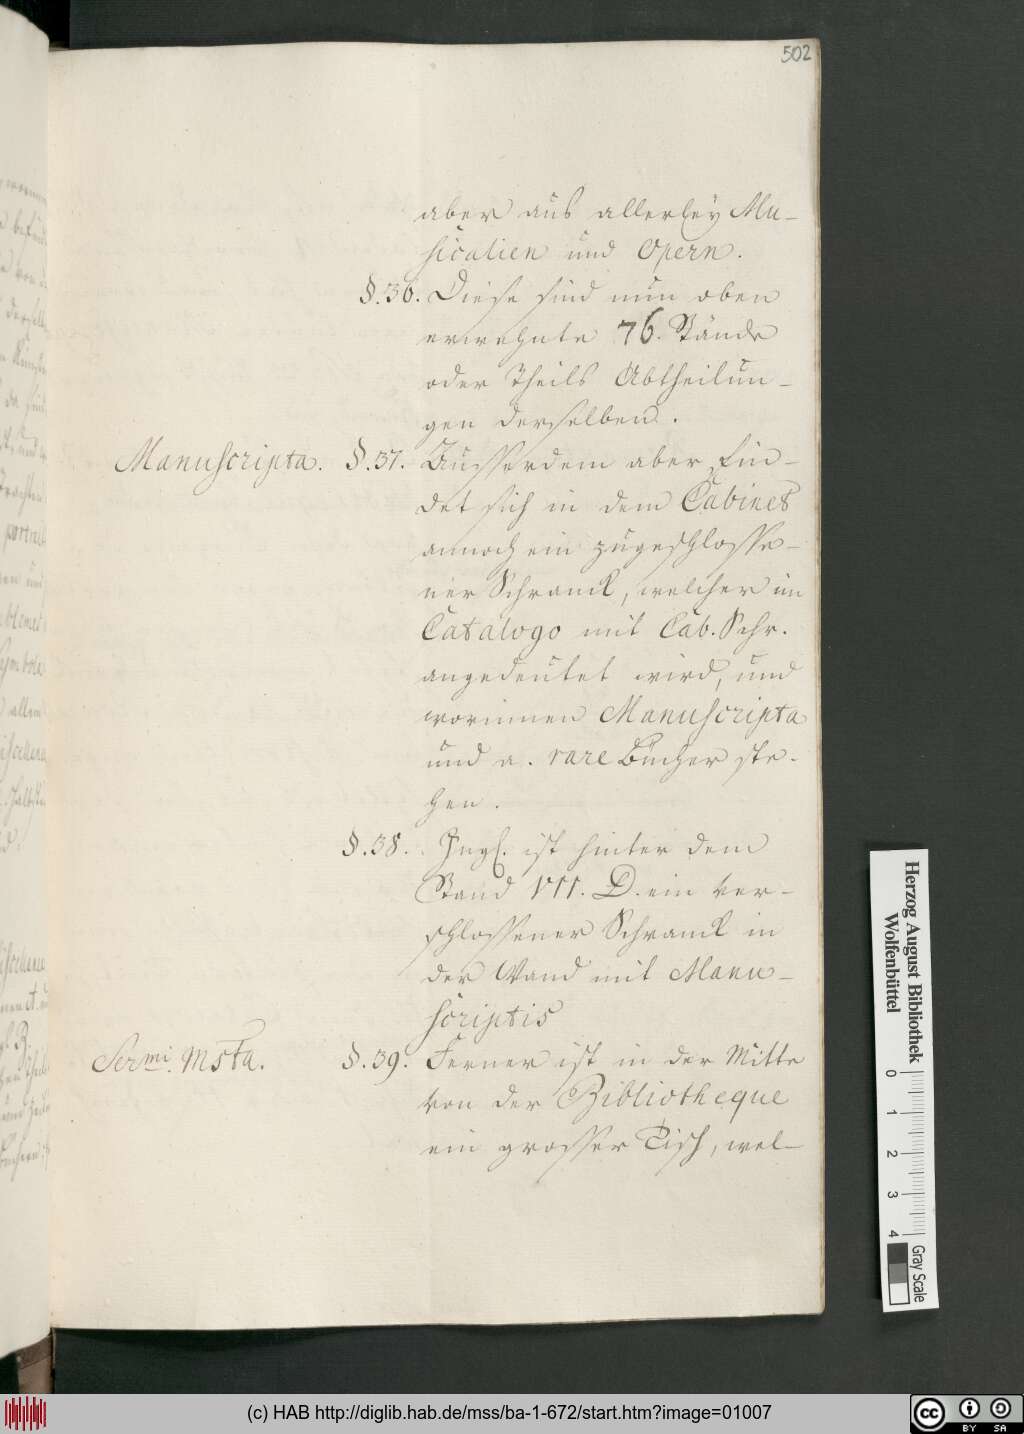 502
aber aus allerley Mu-
sicalien und Opern.
§. 36. Diese sind nun oben
erwehnte 76. Stände
oder Theils Abtheilun-
gen derselben.
Manuscripta. §. 37. Ausserdem aber fin-
det sich in dem Cabinet
annoch ein zugeschlosse-
ner Schranck, welcher im
Catalogo mit Cab. Schr.
angedeutet wird, und
worinnen Manuscripta
und a. rare Bücher ste-
hen.
§. 38. Ingl. ist hinter dem
Stand VII. D. ein ver-
schlossener Schranck in
der Wand mit Manu-
scriptis
Sermi. Msta. §. 39. Ferner ist in der Mitte
von der Bibliotheque
ein grosser Tisch, wel-
Herzog August Bibliothek
Wolfenbüttel
0 1 2 3 4
Gray Scale
(c) HAB http://diglib.hab.de/mss/ba-1-672/start.htm?image=01007
cc BY SA